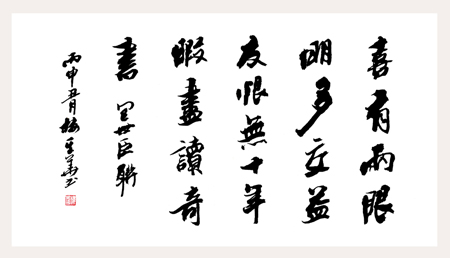 喜有兩眼
明多交益
友恨無十年
暇盡讀奇
書 包世臣聯
丙申丑月